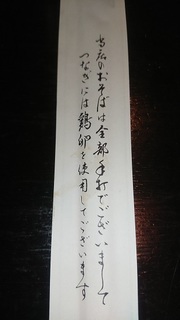 当店のおそばは全部手打でございまして
つなぎには鶏卵を使用してございます